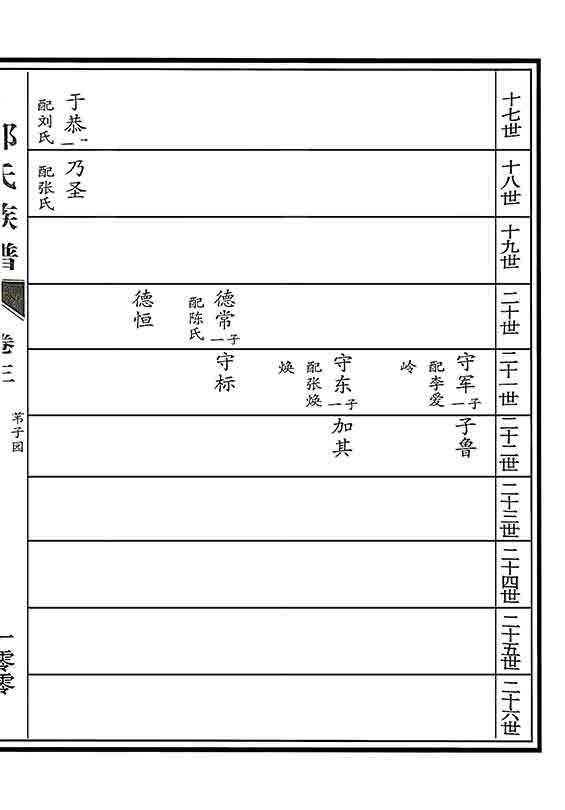 十七世
十八世
十九世
二十世
二十一世
二十二世
二十三世
二十四世
二十五世
二十六世
守军
一子
配李爱
岭
子鲁
守东
一子
配张焕
焕
加其
德常
一子
配陈氏
守标
德恒
于恭
一子
配刘氏
乃圣
配张氏
氏族谱
卷三
苇子园
一零零